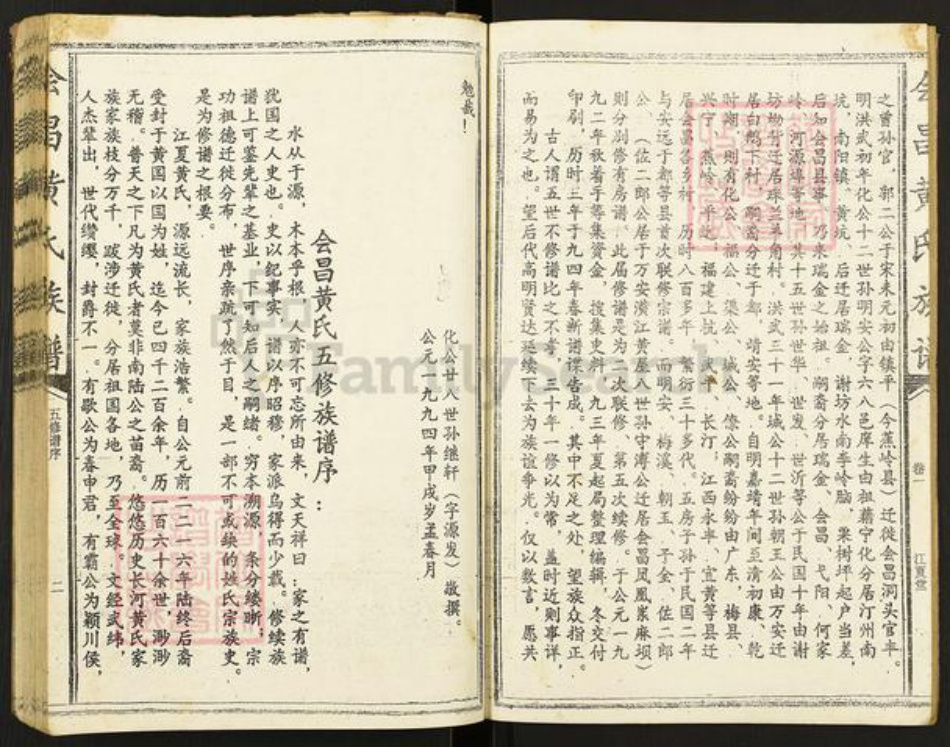 会昌黄氏族谱
卷一
江夏堂
之曾孙官，郭二公于宋末元初由镇平（今蕉岭县）迁徙会昌洞头官丰。
明洪武初年化公十二世孙明安公字六八邑庠生由祖籍宁化分居汀州南
坑，南阳镇、黄坑，后迁居瑞金、谢坊水南李岭脑，栗树坪起户当差，
后知会昌县事，乃来瑞金之始祖。嗣裔分居瑞金、会昌、弋阳、何家
岭、河源埠等地。其十五世孙世华、世发、世沂等公于民国十年由谢
坊坳背迁居珠兰羊角村。洪武三十一年城公十二世孙朝玉公由万安迁
居白鹅下村，嗣裔分迁于都，靖安等地。自明嘉靖年间至清初康、乾
时期，则有化公、福公、渠公、城公、僚公嗣裔纷纷由广东，梅县、
兴宁、蕉岭、平远；福建上杭、武平、长汀；江西永丰、宜黄等县迁
居会昌各乡村，历时八百多年，繁衍三十多代。五房子孙于民国二年
与安远于都等县首次联修宗谱。而明安、梅溪、朝玉、予金、佐二郎
公、（佐二郎公居于万安潢江黄屋八世孙守溥公迁居会昌凤凰岽麻坝）
则分别修有房谱，此届修谱是为二次联修、第五次续修。于公元一九
九二年秋着手筹集资金，搜集史料，九三年夏起局整理编辑，冬交付
印刷，历时三年于九四年春新谱谋告成。其中不足之处，望族众指正。
古人谓五世不修谱比之不孝，三十年一修以为常，盖时近则事详，
而易为之也。望后代高明贤达延续下去为族谊争光。仅以数言，愿共
勉哉！
化公廿八世孙继轩（字源发）敬撰。
公元一九九四年甲戌岁孟春月
会昌黄氏五修族谱序：
水从于源，木本乎根，人亦不可忘所由来，文天祥曰：家之有谱，
犹国之人史也。史以纪事实，谱以序昭穆，家派乌得而少载。修续族
谱上可鉴先辈之基业，下可知后人之嗣绪。穷本溯源，条分缕晰；宗
功祖德迁徙分布，世序亲疏了然于目，是一部不可或缺的姓氏宗族史。
是为修谱之根要。
江夏黄氏，源远流长，家族浩繁。自公元前二二一六年陆终后裔
受封于黄国以国为姓，迄今已四千二百余年，历一百六十余世，渺渺
无稽。普天之下凡为黄氏者莫非南陆公之苗裔。悠悠历史长河黄氏家
族家族枝分万千，跋涉迁徙，分居祖国各地，乃至全球。文经武纬，
人杰辈出，世代缵缨，封爵不一。有歇公为春申君，有霸公为颖川侯，
会昌黄氏族谱
五修谱序
二
FamilySearch